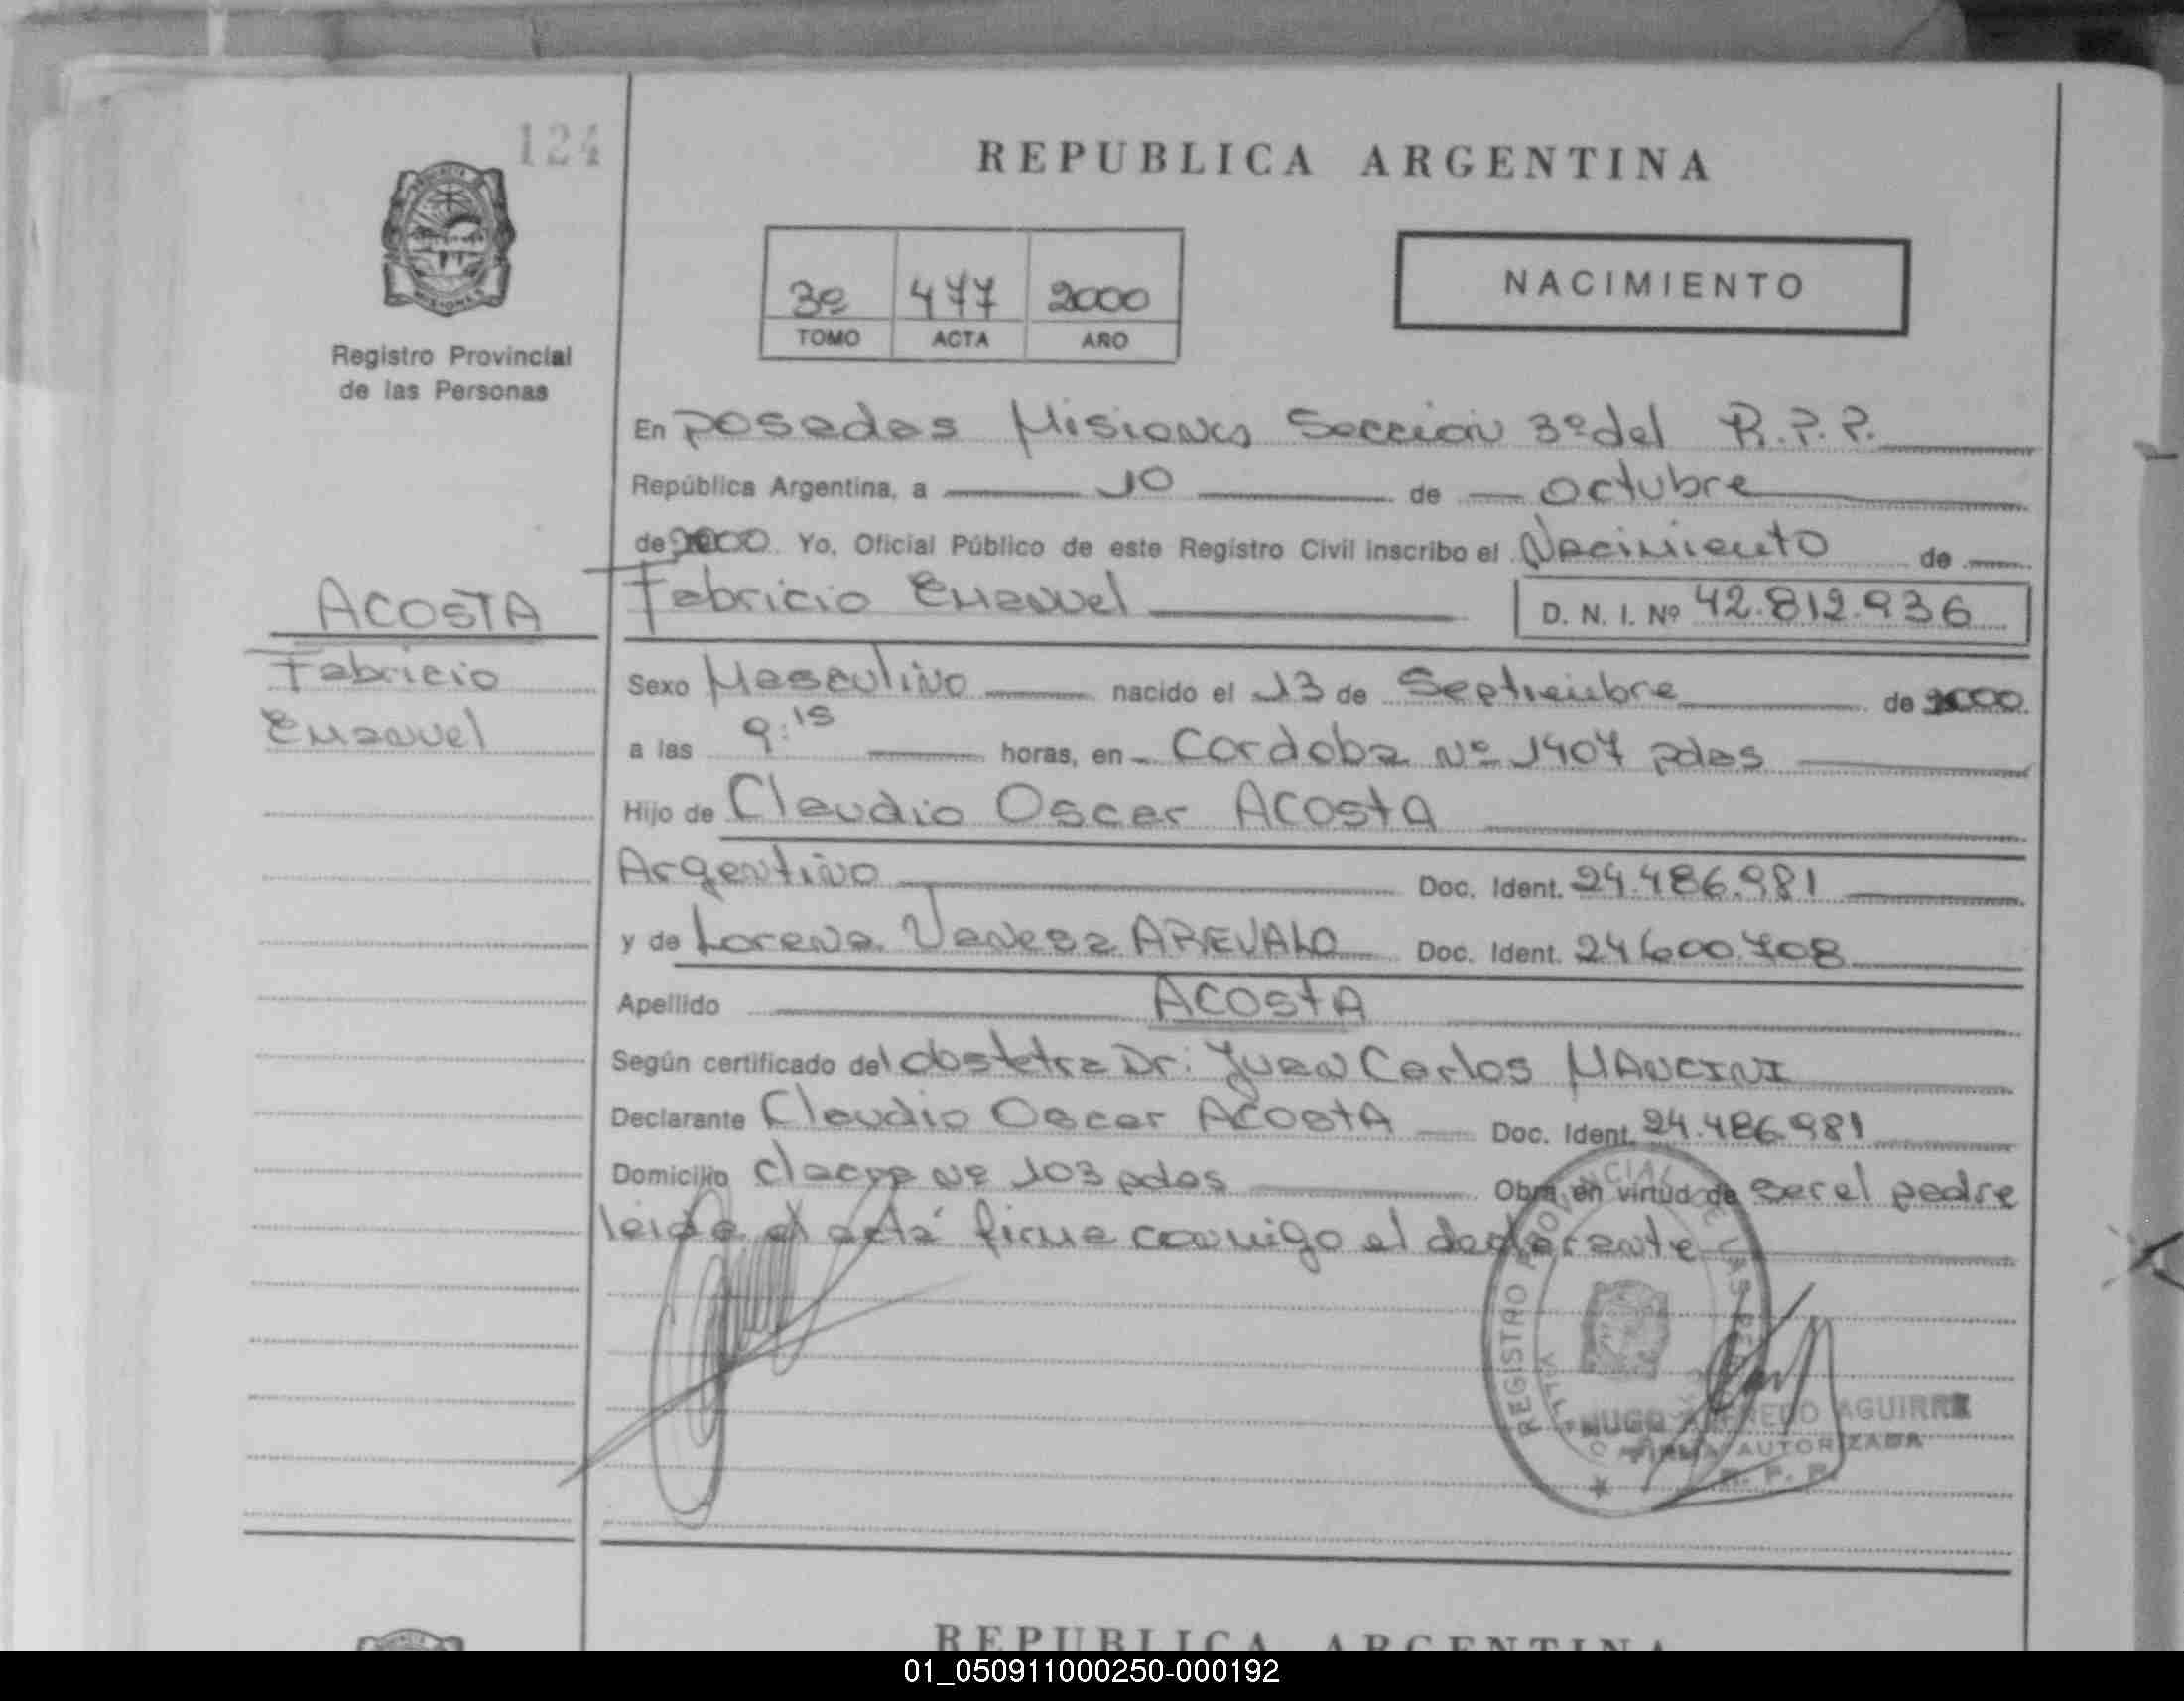 124
REPUBLICA ARGENTINA
3º 477 2000
TOMO ACTA AÑO
NACIMIENTO
Registro Provincial
de las Personas
En Posadas Misiones Sección 3º del R.P.P.
República Argentina, a 10 de Octubre
de 2000 Yo, Oficial Público de este Registro Civil inscribo el Nacimiento de
Fabricio Emanuel D. N. I. Nº 42.812.936
ACOSTA
Fabricio
Emanuel
Sexo Masculino nacido el 13 de Septiembre de 2000
a las 9:15 horas, en Cordoba Nº 1407 pdas
Hijo de Claudio Oscar ACOSTA
Argentino Doc. Ident. 24.486.981
y de Lorena Vanesa AREVALO Doc. Ident. 24600.708
Apellido ACOSTA
Según certificado del obstetra Dr: Juan Carlos MANCINI
Declarante Claudio Oscar ACOSTA Doc. Ident. 24.486.981
Domicilio Nº 103 pdas Obra en virtud de ser el padre
leida el acta firma conmigo el declarante
REGISTRO PROVINCIAL DE LAS
HUGO ALFREDO AGUIRRE
FIRMA AUTORIZADA
R. P. P.
REPUBLICA ARGENTINA
01_050911000250-000192